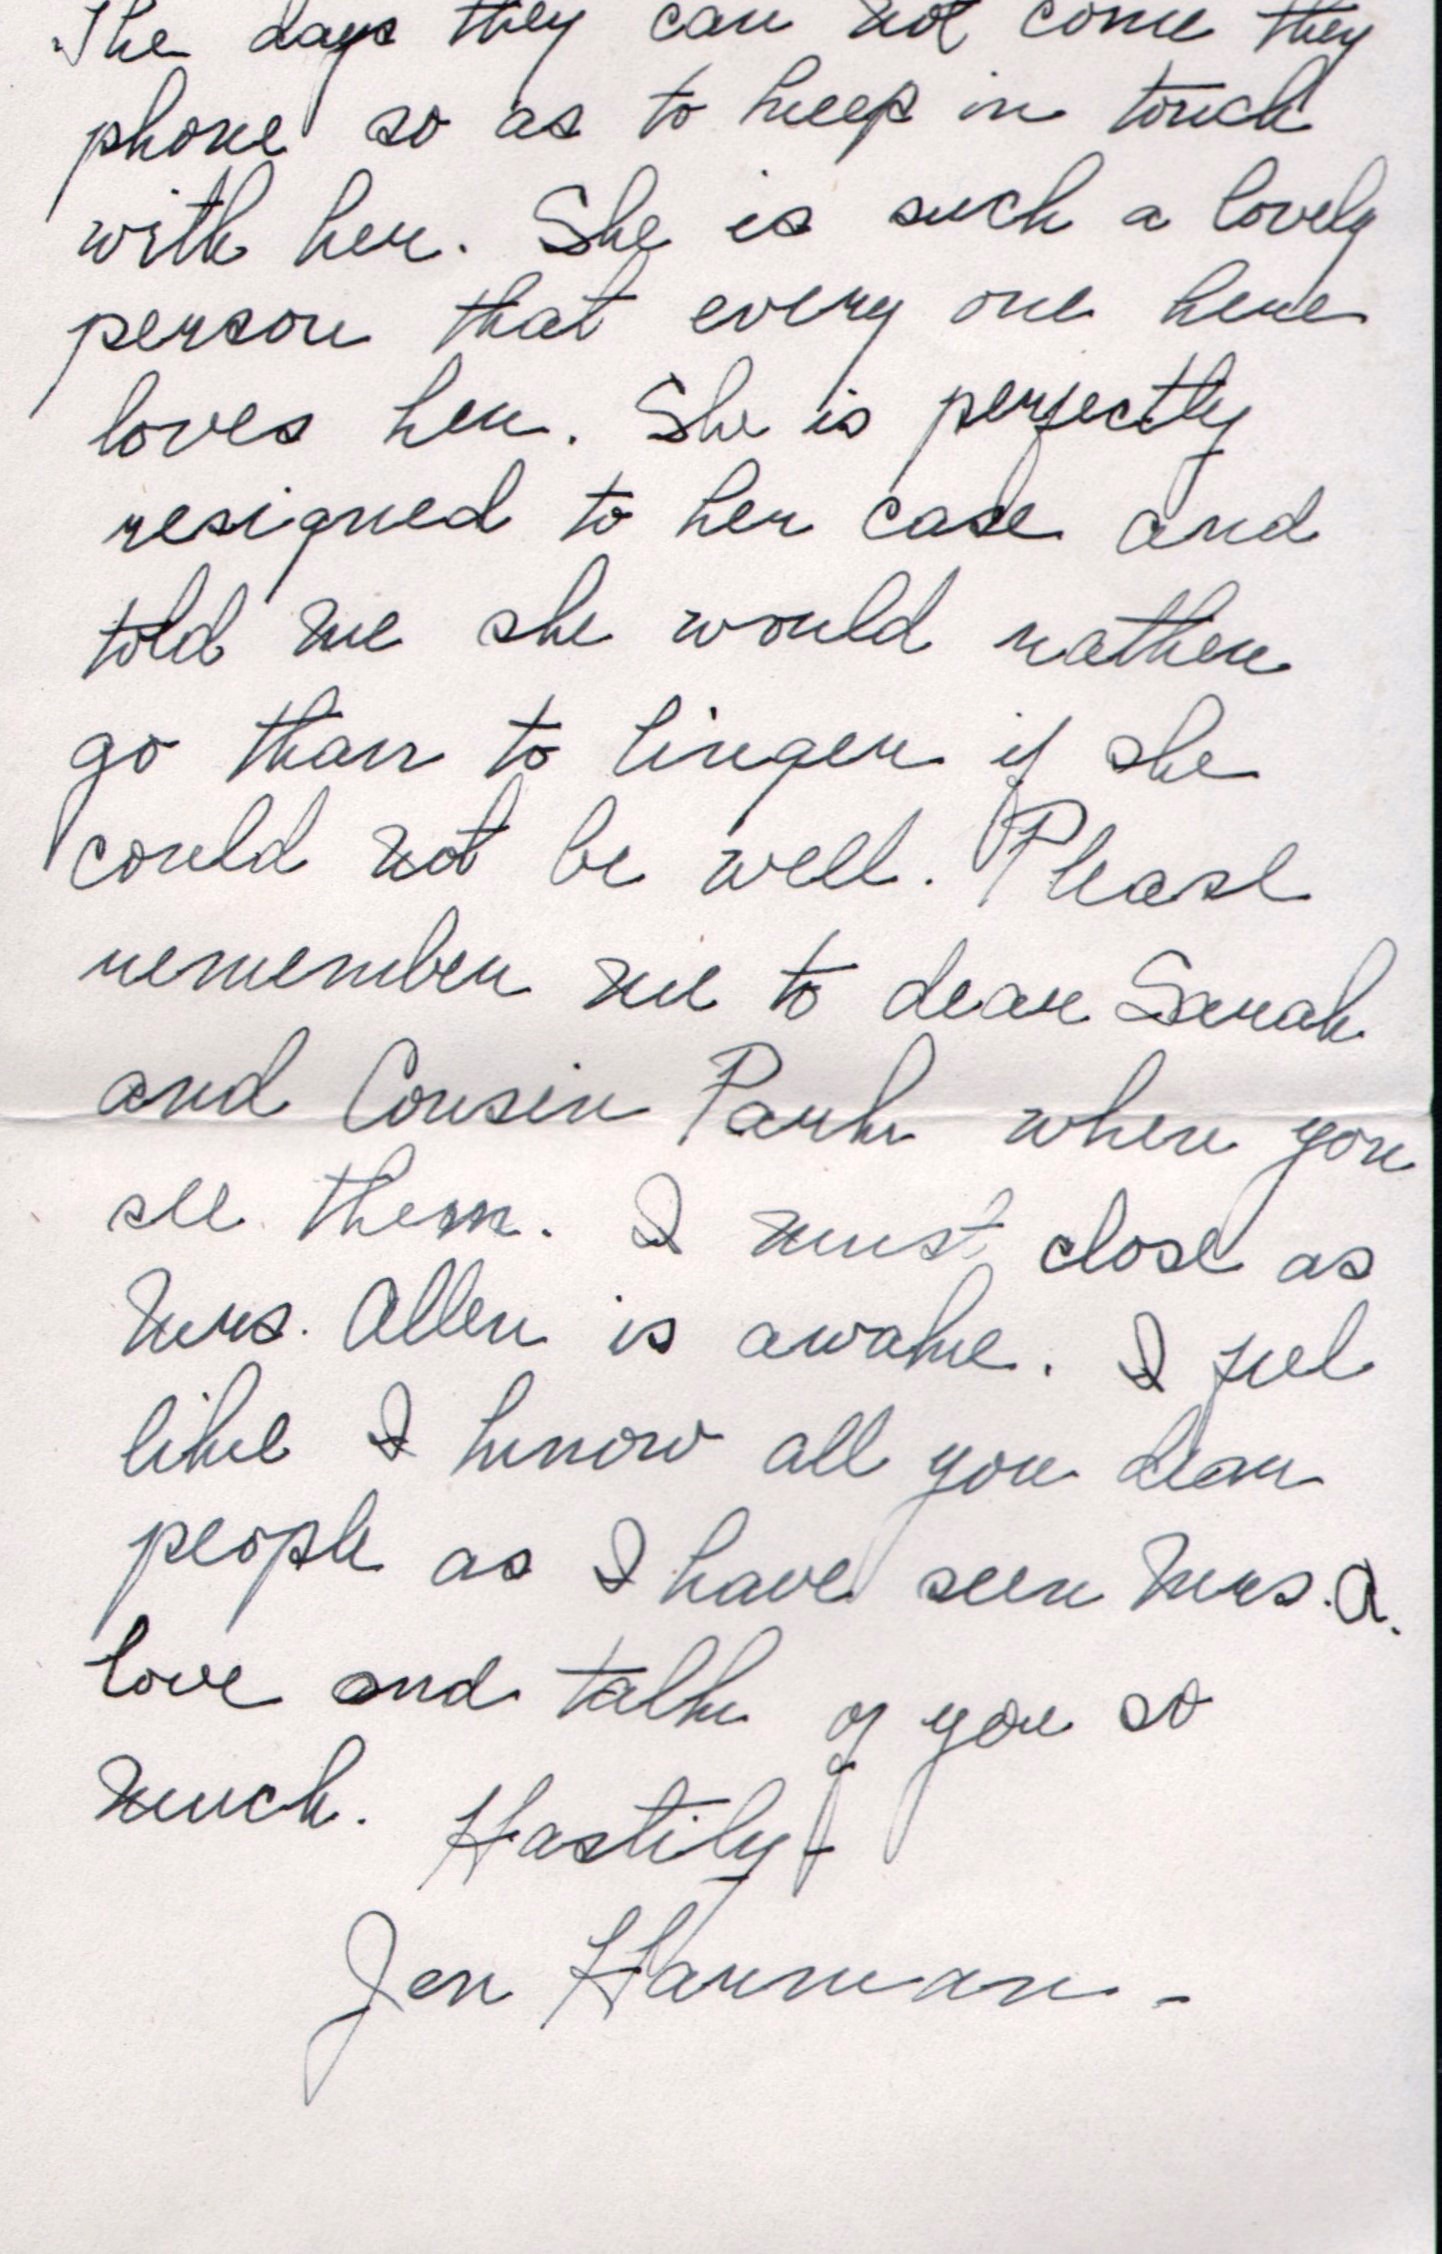 The days they can not come they
phone so as to keep in touch
with her. She is such a lovely
person that every one here
loves her. She is perfectly
resigned to her case and
told me she would rather
go than to linger if she
could not be well. Please
remember me to dear Sarah
and Cousin Park when you
see them. I must close as
Mrs. Allen is awake. I feel
like I know all you dear
people as I have seen Mrs. A.
love and talk of you so
much. Hastily -
Jen Harman -